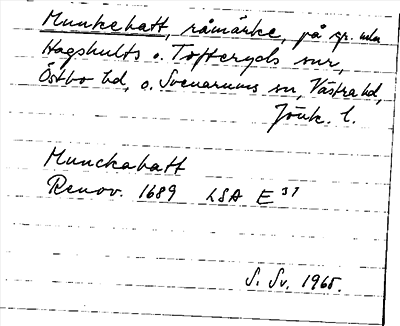 Munkehatt, råmärke, på gr. mla
Hagshults o. Tofteryds snr,
Östbo hd, o. Svenarums sn, Västra hd,
Jönk. l.
Munckahatt
Renov. 1689 LSA E 37
S. Sv. 1965.